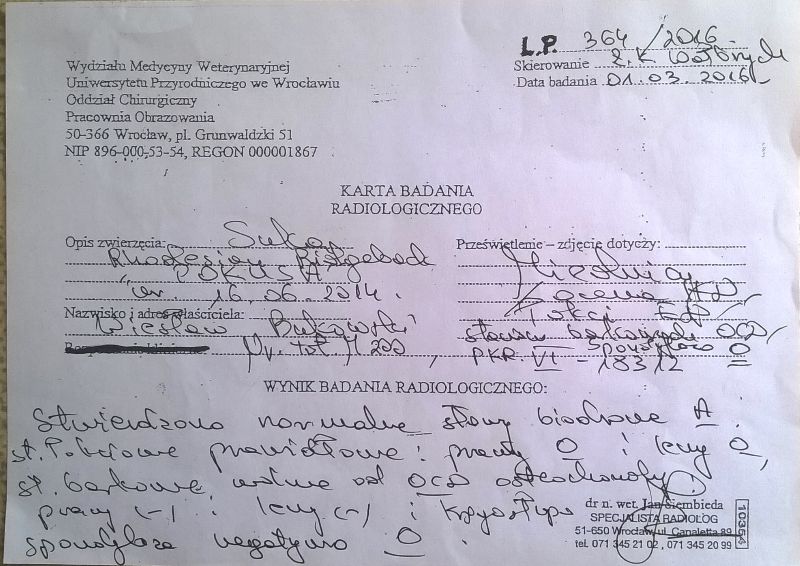 L.P. 364 / 2016
Skierowanie
Data badania 01.03.2016
Wydziału Medycyny Weterynaryjnej
Uniwersytetu Przyrodniczego we Wrocławiu
Oddział Chirurgiczny
Pracownia Obrazowania
50-366 Wrocław, pl. Grunwaldzki 51
NIP 896-000-53-54, REGON 000001867
KARTA BADANIA
RADIOLOGICZNEGO
Opis zwierzęcia: Suka
Rhodesian Ridgeback
"POKUSA"
ur. 16.06.2014.
Nazwisko i adres właściciela:
Wiesław Bukowski
Nr. tat. 7200,
Prześwietlenie – zdjęcie dotyczy:
Miednicy
Ocena HD,
Łokci ED,
stawów barkowych OCD,
spondyloza O
PKR. VI - 18312
WYNIK BADANIA RADIOLOGICZNEGO:
Stwierdzono normalne stawy biodrowe A.
st. łokciowe prawidłowe: prawy O i lewy O,
st. barkowe wolne od OCD
prawy (-) i lewy (-) i kręgosłupa
spondyloza negatywna O.
dr n. wet. Jan Siembieda
SPECJALISTA RADIOLOG
51-650 Wrocław, ul. Canaletta 89
tel. 071 345 21 02, 071 345 20 99
10354